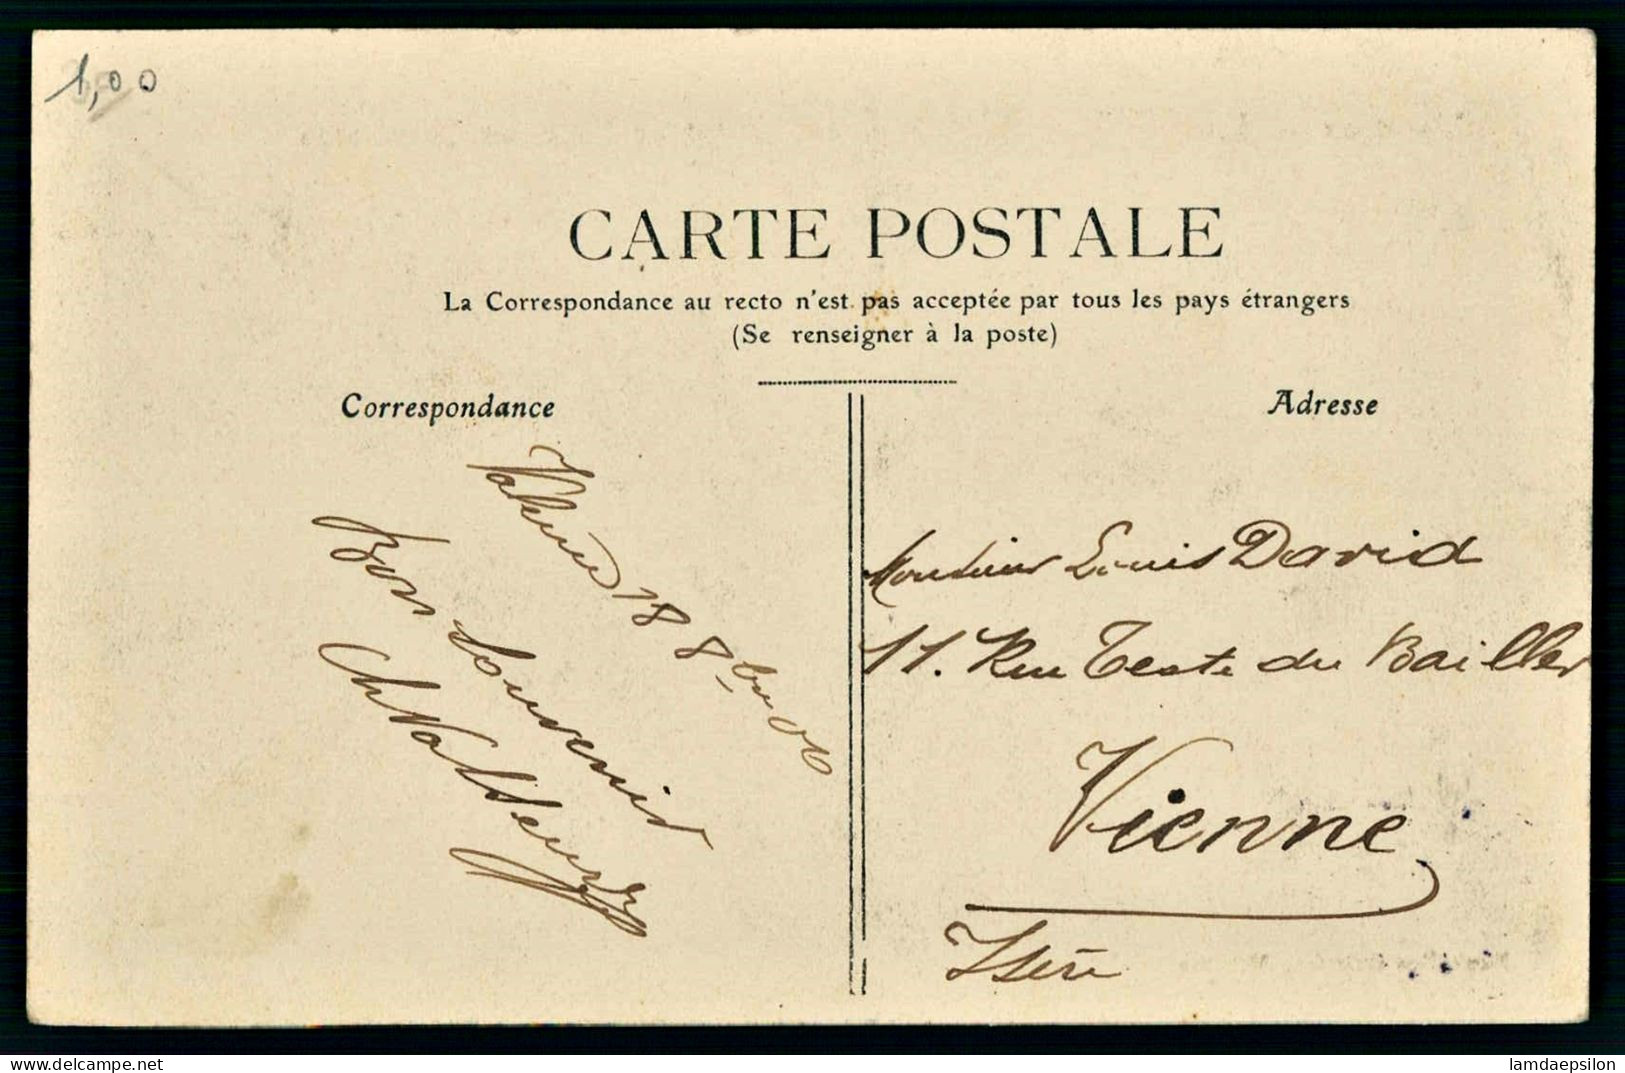 1,00
CARTE POSTALE
La Correspondance au recto n'est pas acceptée par tous les pays étrangers
(Se renseigner à la poste)
Correspondance
Valence 18 8bre 06
Bon Souvenir
Adresse
Monsieur Louis David
11. Rue Teste du Bailler
Vienne
Isère
delcampe.net
lamdaepsilon